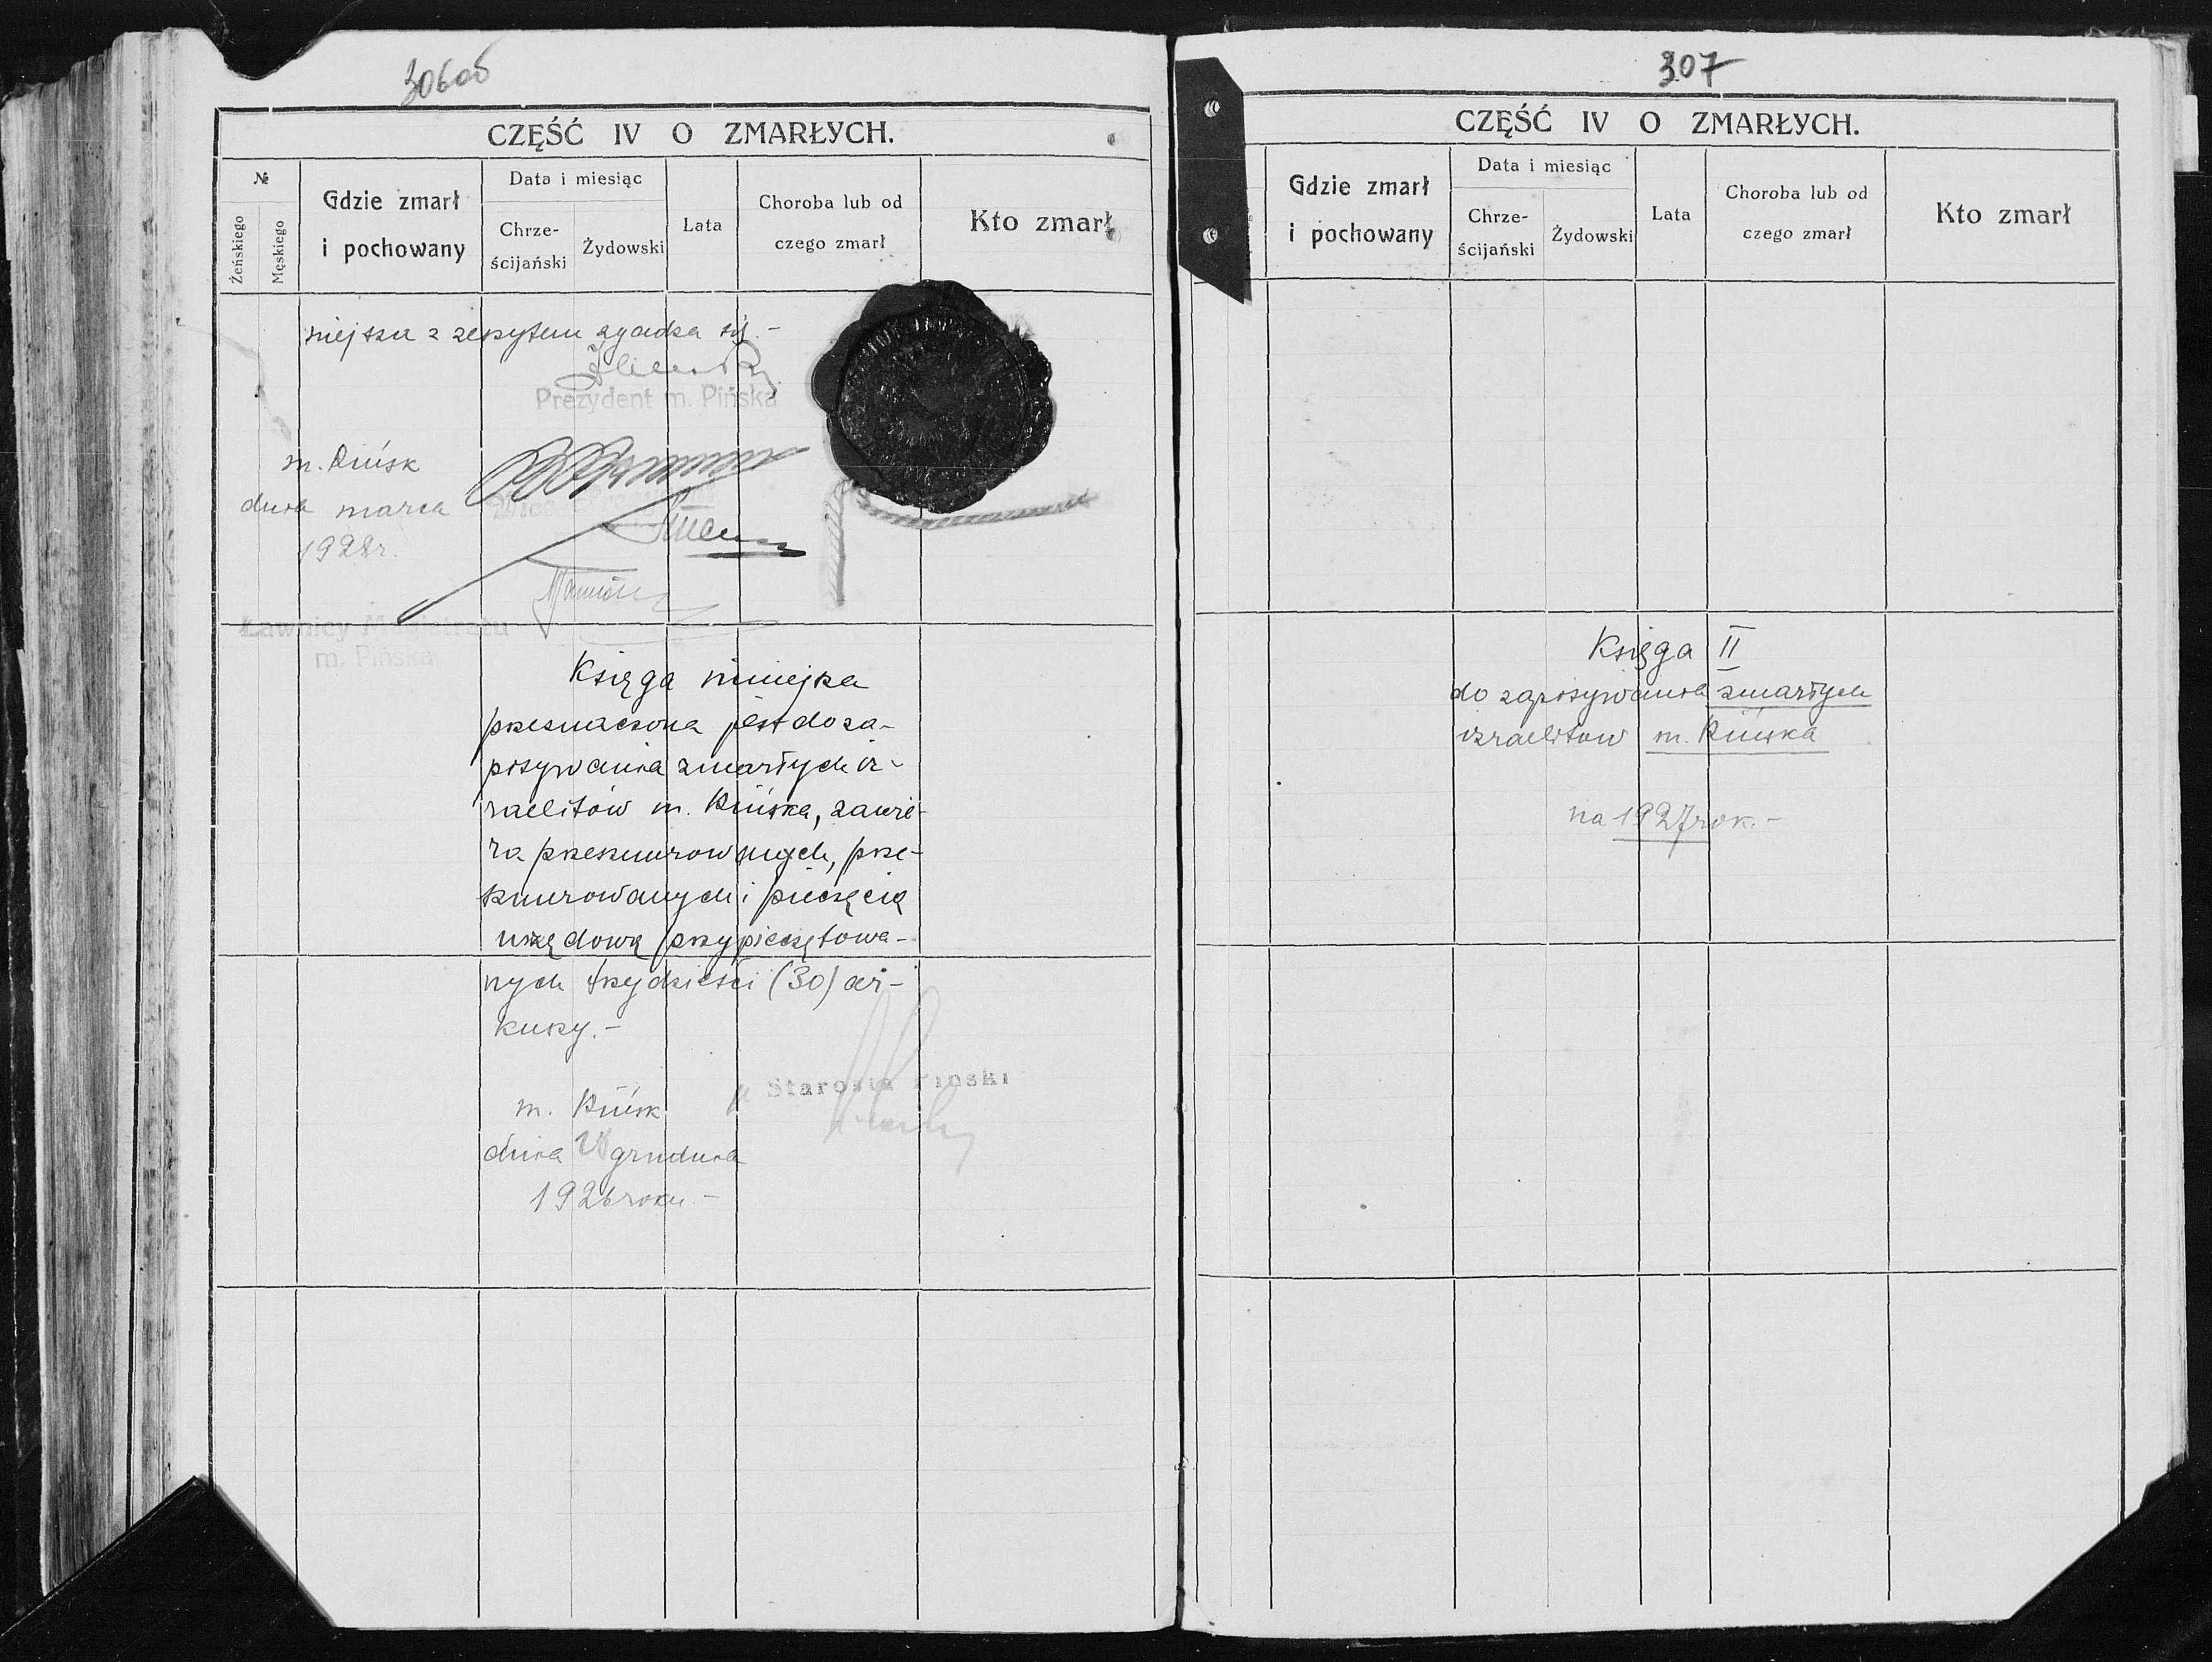 306об
CZĘŚĆ IV O ZMARŁYCH.
№
Żeńskiego
Męskiego
Gdzie zmarł
i pochowany
Data i miesiąc
Chrze-
ścijański
Żydowski
Lata
Choroba lub od
czego zmarł
Kto zmarł
niejsza z zeszytem zgadza się.-
Prezydent m. Pińska
m. Pińsk
dnia marca
1928r.
Ławnicy Magistratu
m. Pińska
Księga niniejsza
przeznaczona jest do za-
pisywania zmarłych iz-
raelitów m. Pińska, zawie-
ra przesznurownych, prze-
sznurowanych i pieczęcią
urzędową przypieczętowa-
nych trzydzieści (30) ar-
kuszy.-
Starosta Piński
m. Pińsk
dnia grudnia
1926 roku -
307
CZĘŚĆ IV O ZMARŁYCH.
Gdzie zmarł
i pochowany
Data i miesiąc
Chrze-
ścijański
Żydowski
Lata
Choroba lub od
czego zmarł
Kto zmarł
Księga II
do zapisywania zmarłych
izraelitów m. Pińska
na 1927 rok.-